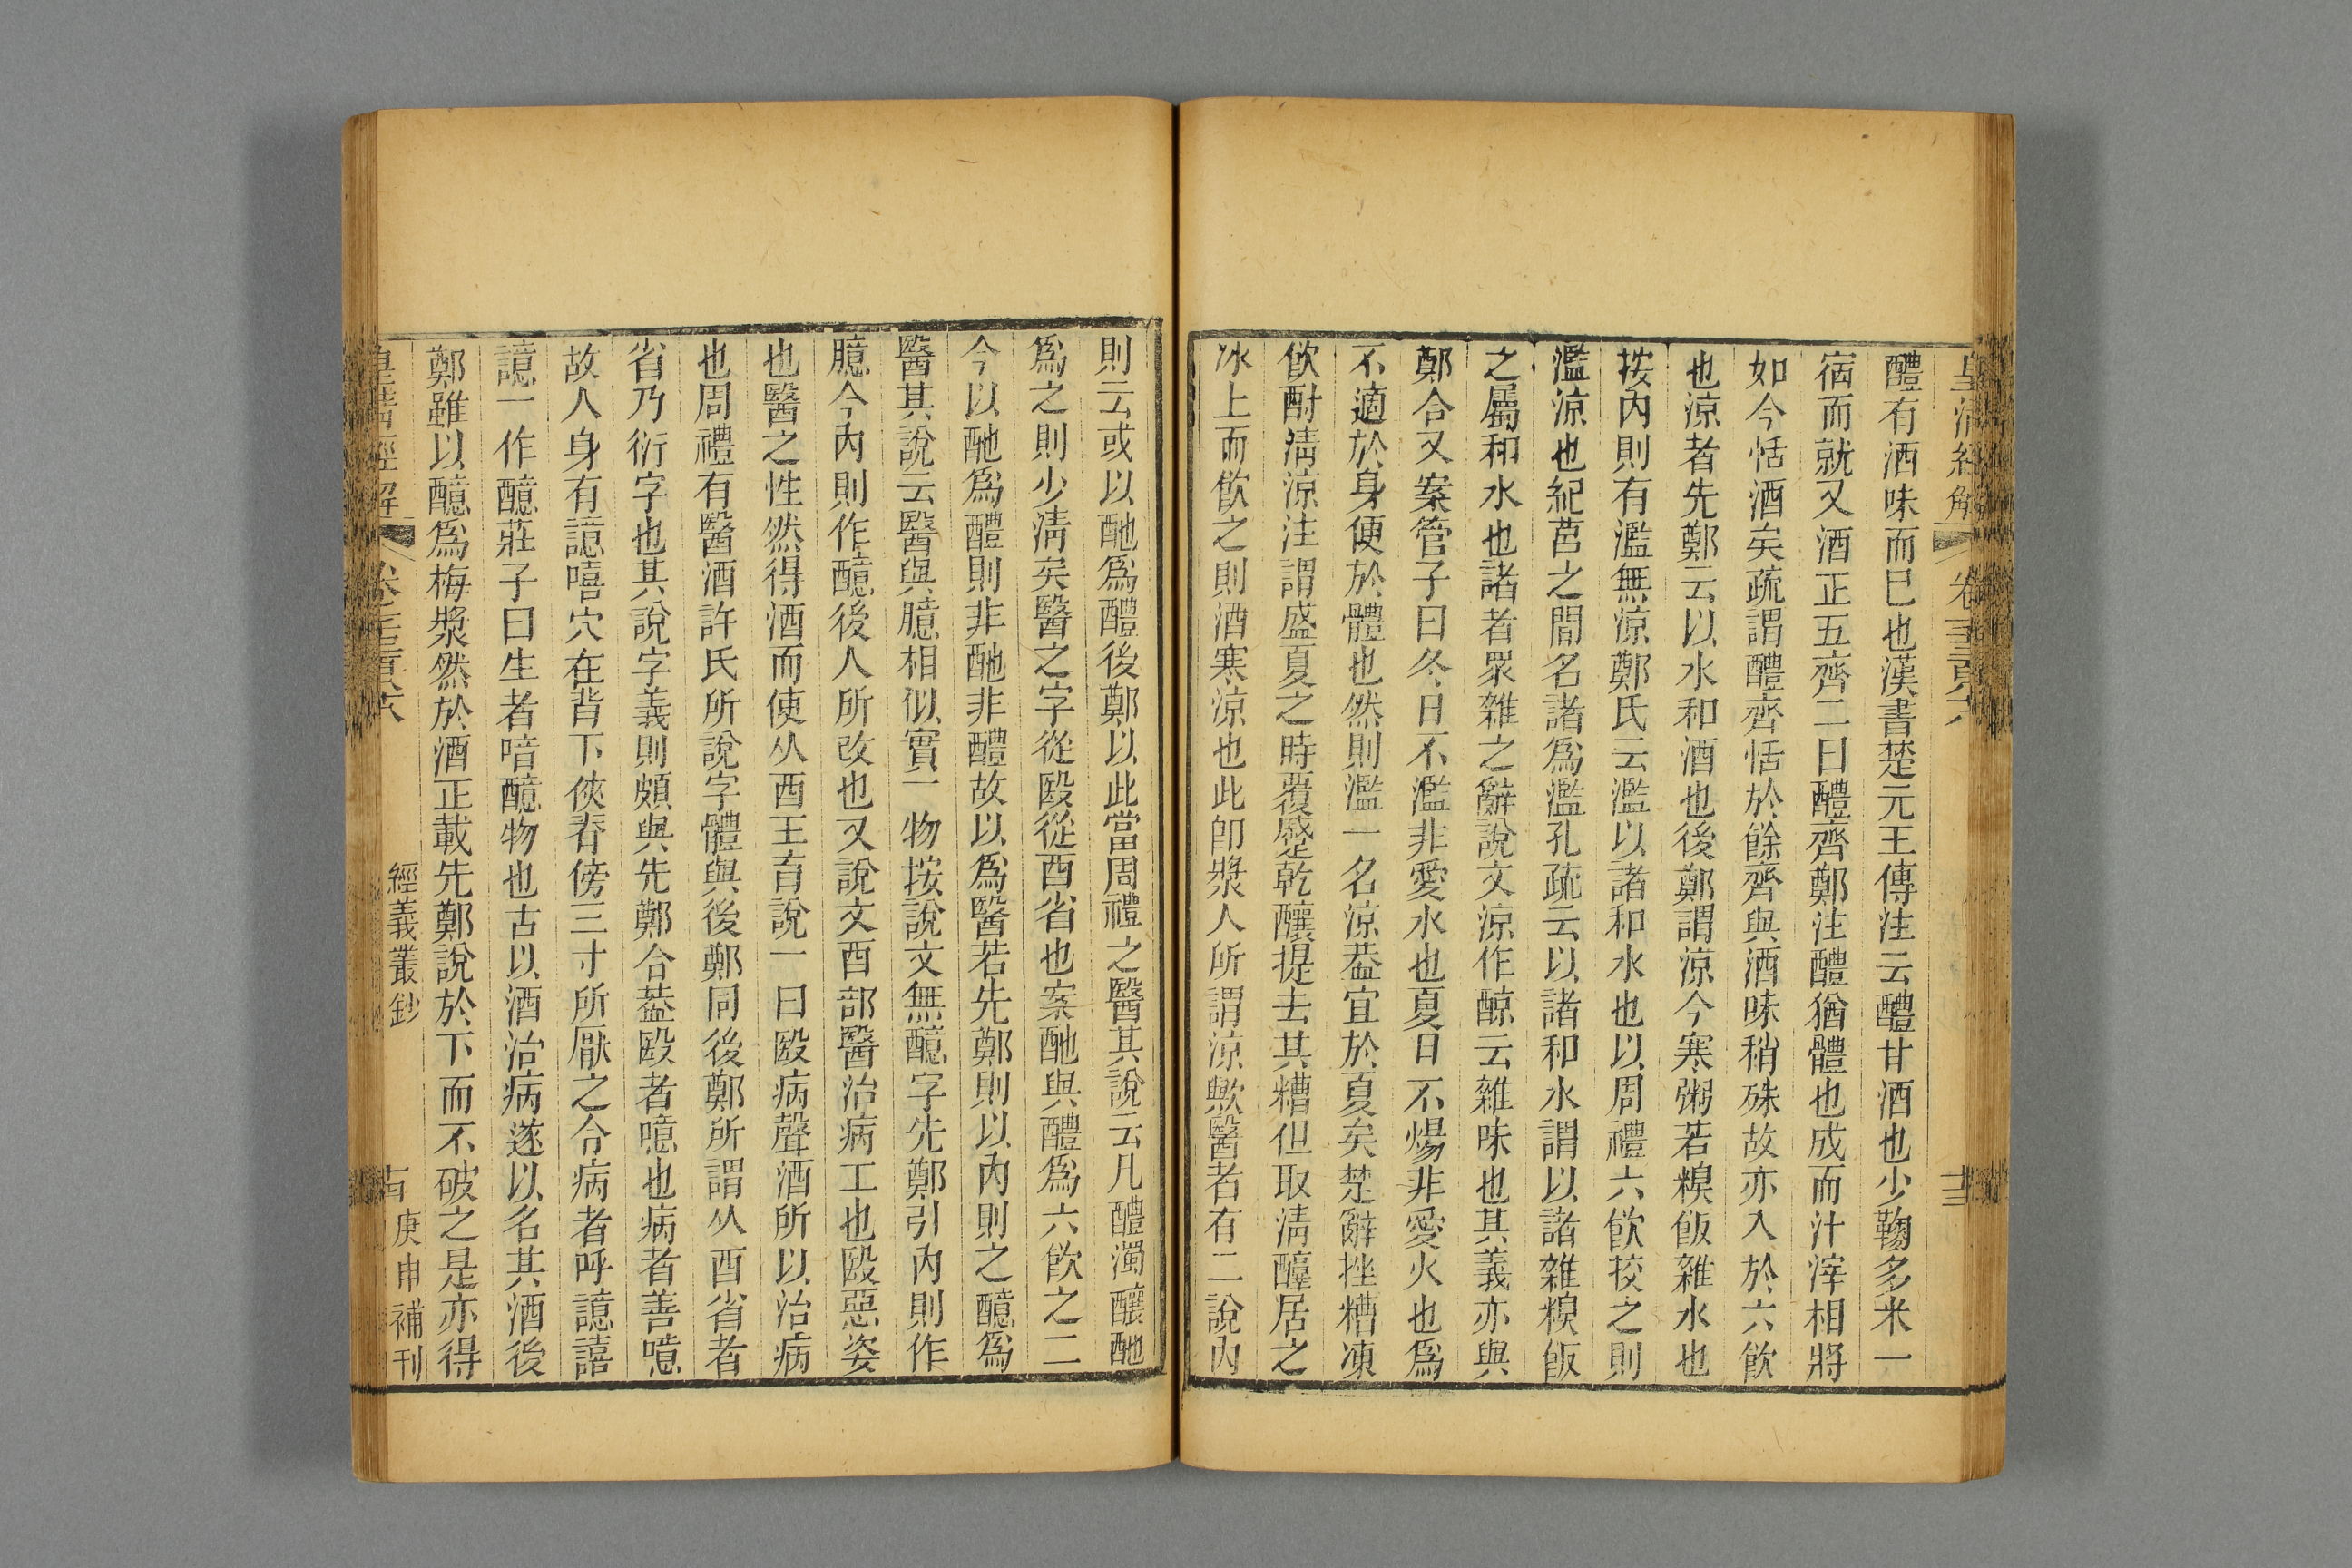 醴有酒味而已也漢書楚元王傳注云醴甘酒也少鞠多米一
宿而就又酒正五齊二曰醴齊鄭注醴猶體也成而汁滓相將
如今恬酒矣疏謂醴齊恬於餘齊與酒味稍殊故亦入於六飮
也涼者先鄭云以水和酒也後鄭謂涼今寒粥若糗飯雜水也
按內則有濫無涼鄭氏云濫以諸和水也以周禮六飮挍之則
濫涼也紀莒之間名諸爲濫孔疏云以諸和水謂以諸雜糗飯
之屬和水也諸者眾雜之辭說文涼作䣼云雜味也其義亦與
鄭合又案管子曰冬日不濫非愛水也夏日不煬非愛火也爲
不適於身便於體也然則濫一名涼葢宜於夏矣楚辭挫糟凍
飮酎淸涼注謂盛夏之時覆蹙乾釀提去其糟但取淸醇居之
冰上而飮之則酒寒涼也此卽漿人所謂涼歟醫者有二說內
則云或以酏爲醴後鄭以此當周禮之醫其說云凡醴濁釀酏
爲之則少淸矣醫之字從殹從酉省也案酏與醴爲六飮之二
今以酏爲醴則非酏非醴故以爲醫若先鄭則以內則之醷爲
醫其說云醫與臆相似實一物按說文無醷字先鄭引內則作
臆今內則作醷後人所改也又說文酉部醫治病工也殹惡姿
也醫之性然得酒而使从酉王育說一曰殹病聲酒所以治病
也周禮有醫酒許氏所說字體與後鄭同後鄭所謂从酉省者
省乃衍字也其說字義則頗與先鄭合葢殹者噫也病者善噫
故人身有譩嘻穴在背下俠脊傍三寸所厭之令病者呼譩譆
譩一作醷莊子曰生者喑醷物也古以酒治病遂以名其酒後
鄭雖以醷爲梅漿然於酒正載先鄭說於下而不破之是亦得
皇淸經解
經義叢鈔
庚申補刊